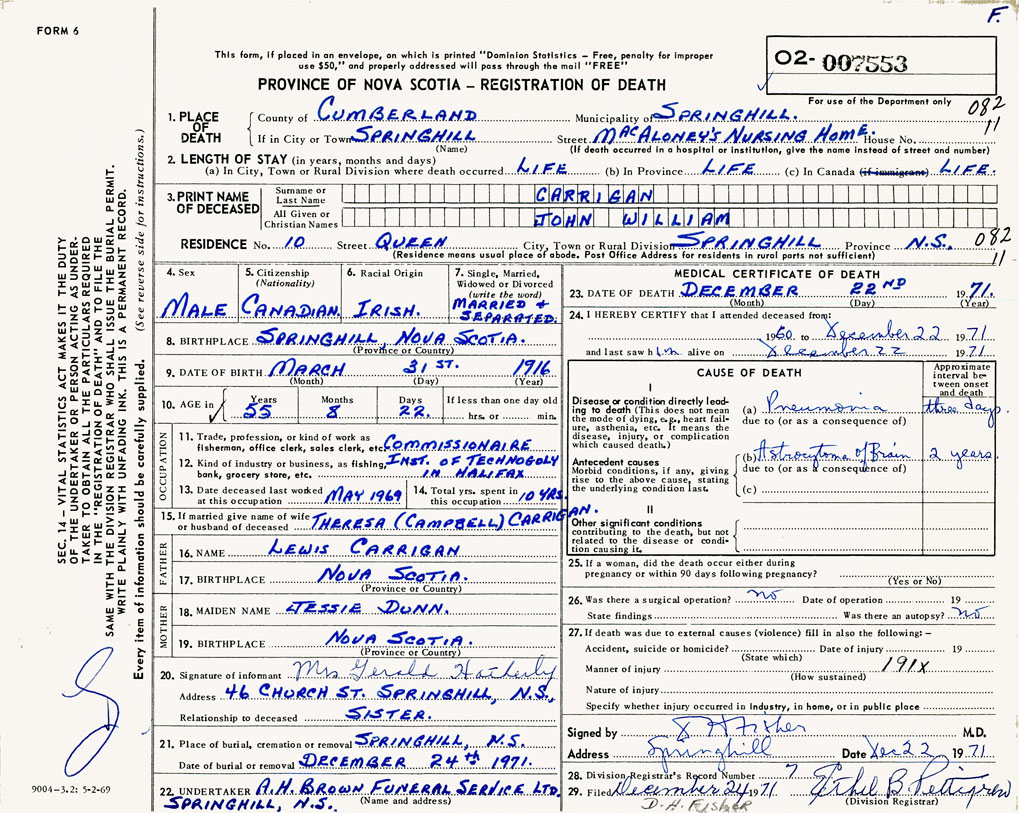 F.
FORM 6
This form, if placed in an envelope, on which is printed "Dominion Statistics – Free, penalty for improper
use $50," and properly addressed will pass through the mail "FREE"
O2- 007553
PROVINCE OF NOVA SCOTIA – REGISTRATION OF DEATH
For use of the Department only
082
11
1. PLACE OF DEATH
County of CUMBERLAND Municipality of SPRINGHILL.
If in City or Town SPRINGHILL Street MACALONEY'S NURSING HOME. House No.
(Name) (If death occurred in a hospital or institution, give the name instead of street and number)
2. LENGTH OF STAY (in years, months and days)
(a) In City, Town or Rural Division where death occurred LIFE (b) In Province LIFE (c) In Canada (if immigrant) LIFE.
3. PRINT NAME OF DECEASED
Surname or Last Name CARRIGAN
All Given or Christian Names JOHN WILLIAM
RESIDENCE No. 10 Street QUEEN City, Town or Rural Division SPRINGHILL Province N.S. 082
(Residence means usual place of abode. Post Office Address for residents in rural parts not sufficient) 11
4. Sex
MALE
5. Citizenship
(Nationality)
CANADIAN.
6. Racial Origin
IRISH.
7. Single, Married,
Widowed or Divorced
(write the word)
MARRIED &
SEPARATED.
8. BIRTHPLACE SPRINGHILL, NOVA SCOTIA.
(Province or Country)
9. DATE OF BIRTH MARCH 31 ST. 1916
(Month) (Day) (Year)
10. AGE in Years Months Days If less than one day old
55 8 22. hrs. or min.
OCCUPATION
11. Trade, profession, or kind of work as
fisherman, office clerk, sales clerk, etc. COMMISSIONAIRE
12. Kind of industry or business, as fishing, INST. OF TECHNOGOLY
bank, grocery store, etc. IN HALIFAX
13. Date deceased last worked
at this occupation MAY 1969
14. Total yrs. spent in
this occupation 10 YRS.
15. If married give name of wife
or husband of deceased THERESA (CAMPBELL) CARRIGAN.
FATHER
16. NAME LEWIS CARRIGAN
17. BIRTHPLACE NOVA SCOTIA.
(Province or Country)
MOTHER
18. MAIDEN NAME JESSIE DUNN.
19. BIRTHPLACE NOVA SCOTIA.
(Province or Country)
20. Signature of informant Mrs Gerald Hatherly
Address 46 CHURCH ST. SPRINGHILL, N.S.,
Relationship to deceased SISTER.
21. Place of burial, cremation or removal SPRINGHILL, N.S.
Date of burial or removal DECEMBER 24th 1971.
22. UNDERTAKER A.H. BROWN FUNERAL SERVICE LTD.
SPRINGHILL, N.S. (Name and address)
MEDICAL CERTIFICATE OF DEATH
23. DATE OF DEATH DECEMBER 22ND 1971.
(Month) (Day) (Year)
24. I HEREBY CERTIFY that I attended deceased from:
1960 to December 22 1971
and last saw him alive on December 22 1971
CAUSE OF DEATH
Approximate
interval be-
tween onset
and death
I
Disease or condition directly lead-
ing to death (This does not mean
the mode of dying, e.g., heart fail-
ure, asthenia, etc. It means the
disease, injury, or complication
which caused death.)
(a) Pneumonia three days.
due to (or as a consequence of)
Antecedent causes
Morbid conditions, if any, giving
rise to the above cause, stating
the underlying condition last.
(b) Astrocytoma of Brain 2 years.
due to (or as a consequence of)
(c)
II
Other significant conditions
contributing to the death, but not
related to the disease or condi-
tion causing it.
25. If a woman, did the death occur either during
pregnancy or within 90 days following pregnancy?
(Yes or No)
26. Was there a surgical operation? no Date of operation 19
State findings Was there an autopsy? no
27. If death was due to external causes (violence) fill in also the following: –
Accident, suicide or homicide? Date of injury 19
(State which)
Manner of injury 191X
(How sustained)
Nature of injury
Specify whether injury occurred in industry, in home, or in public place
Signed by D H Fisher M.D.
Address Springhill Date Dec 22 1971
28. Division Registrar's Record Number 7
29. Filed December 24 1971 Ethel B Pettigrew
(Division Registrar)
D. H. FISHER
SEC. 14 – VITAL STATISTICS ACT MAKES IT THE DUTY
OF THE UNDERTAKER OR PERSON ACTING AS UNDER-
TAKER TO OBTAIN ALL THE PARTICULARS REQUIRED
IN THE "REGISTRATION OF DEATH" AND TO FILE THE
SAME WITH THE DIVISION REGISTRAR WHO SHALL ISSUE THE BURIAL PERMIT.
WRITE PLAINLY WITH UNFADING INK. THIS IS A PERMANENT RECORD.
Every item of information should be carefully supplied. (See reverse side for instructions.)
9004–3.2: 5-2-69